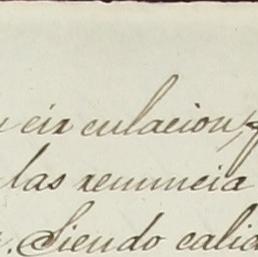 circulacion
las renuncia
Siendo calid